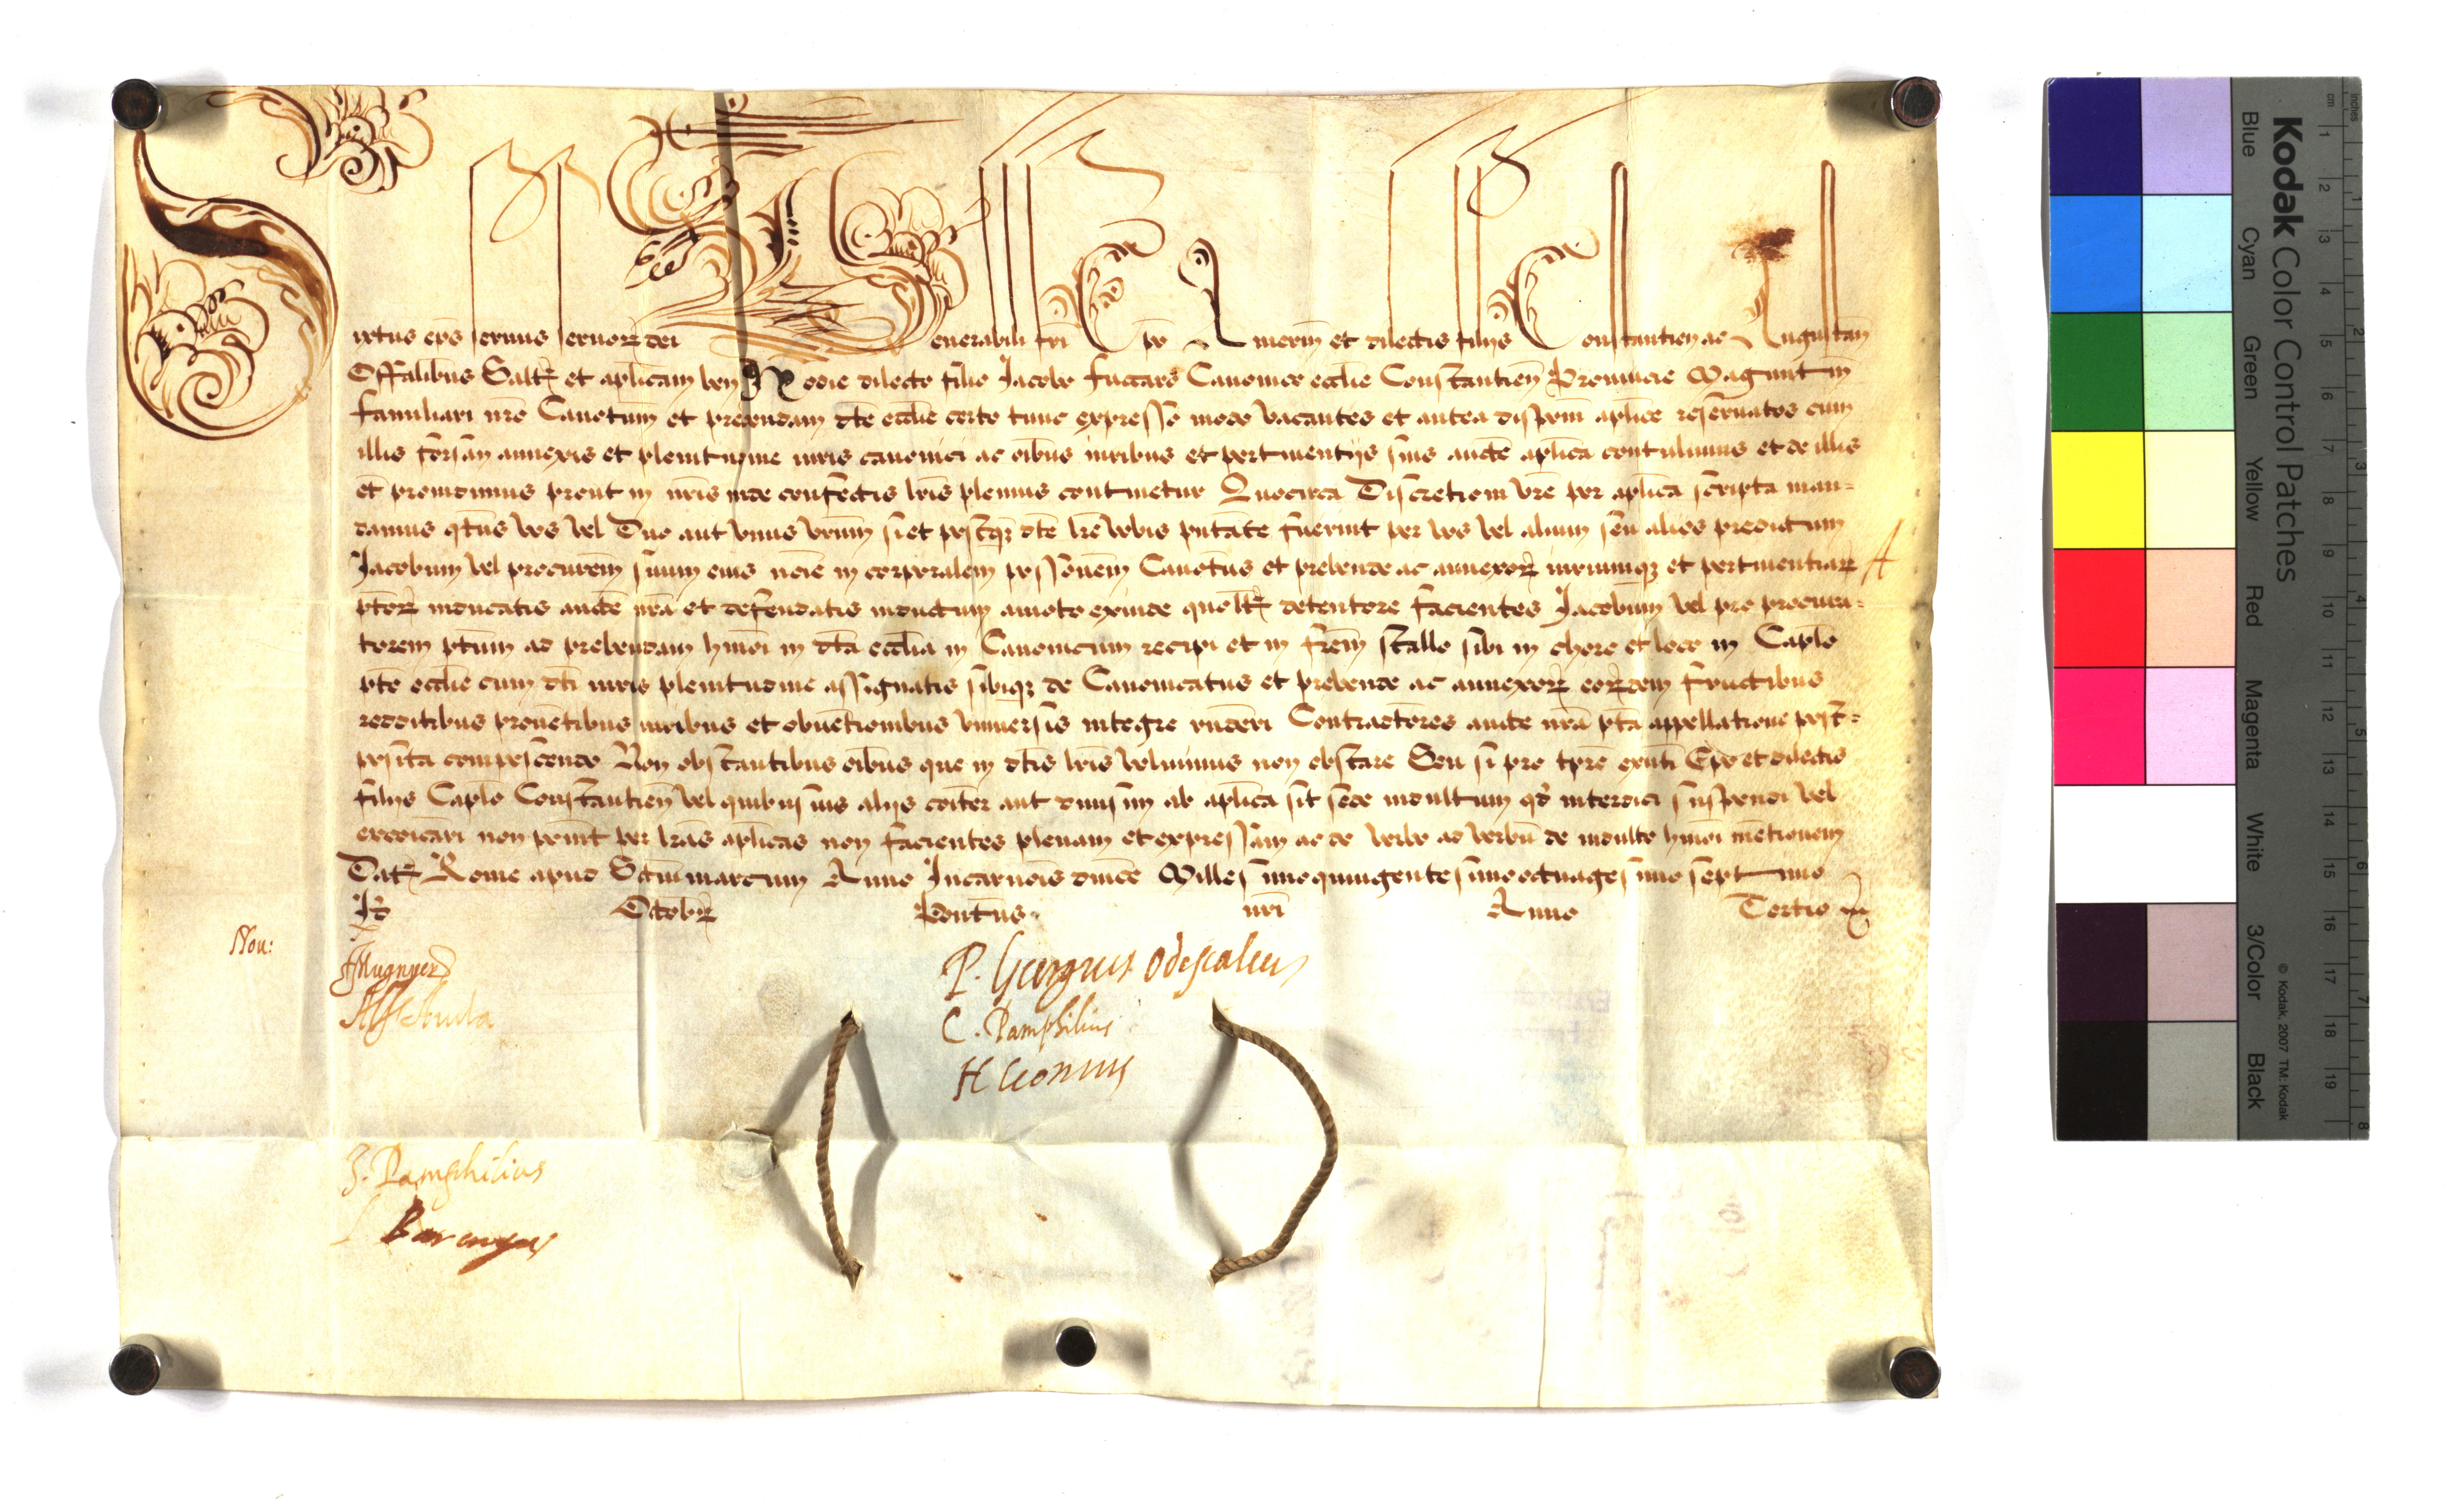 Sixtus ep̄s seruus seruoꝝ dei Venerabili frī Ep̄o Amerin̄ et dilectis filijs Constantien̄ ac Augustan̄
Offālibus Saltꝫ et aplīcam ben̄ Hodie dilecto filio Jacobo fuccaro Canonico ecclīe Constantien̄ Prouincie Maguntin̄
familiari nr̄o Canōtum et prebendam dc̄te ecclīe certo tunc expresso modo vacantes et antea dispōni aplīce reseruatos cum
illis forsan annexis et plenitudine iuris canonici ac oībus iuribus et pertinentijs suis aucte aplīca contulimus et de illis
et prouidimus prout in nr̄is inde confectis lr̄is plenius continetur Quocirca Discretioni vr̄e per aplīca scripta man=
damus qtn̄us vos vel Duo aut vnus vr̄um si et postqꝫ dc̄te lr̄e vobis pn̄tate fuerint per vos vel alium seu alios predictum
Jacobum vel procur̄em suum eius noīe in corporalem poss̄onem Canōtus et prebende ac annexoꝝ iuriumqꝫ et pertinentiaꝝ
pc̄toꝝ inducatis aucte nr̄a et defendatis inductum amoto exinde quolꝫ detentore facientes Jacobum vel pro procura=
torem pc̄tum ad prebendam hm̄oi in dc̄ta ecclīa in Canonicum recipi et in frēm stallo sibi in choro et loco in Caplō
pc̄te ecclīe cum dc̄ti iuris plenitudine assignatis sibiqꝫ de Canonicatus et prebende ac annexoꝝ eoꝝdem fructibus
redditibus prouētibus iuribus et obuētionibus vniuersis integre rn̄deri Contradictores aucte nr̄a pc̄ta appellatione post=
posita compescendo Non obstantibus oībus que in dc̄tis lr̄is voluimus non obstare Seu si pro tpr̄e exn̄ti Ep̄o et dilectis
filijs Caplō Constantien̄ vel quibusuis alijs coīter aut diuisim ab aplīca sit sede indultum qd̄ interdici suspendi vel
excōicari non possint per lr̄as aplīcas non facientes plenam et expressam ac de verbo ad verbū de indulto hm̄oi mētionem
Datꝫ Rome apud Sctm̄marcum Anno Incarnōis dn̄ice Millesimoquingentesimooctuagesimoseptimo
Id Octobꝝ Pontus nr̄i Anno Tertio
Nou:
P. Georgius Odescalcus
C. Pamphilius
H Cconius
J. Pamphilius